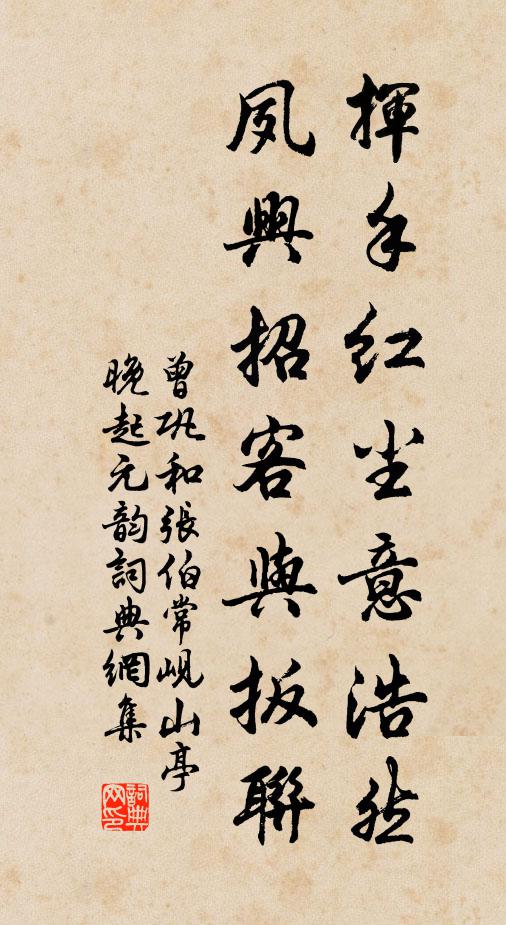 揮手红尘意浩然
夙興招客與扳聯
曾巩和張伯常峴山亭
晚起元韵詞典網集
詞典
网印